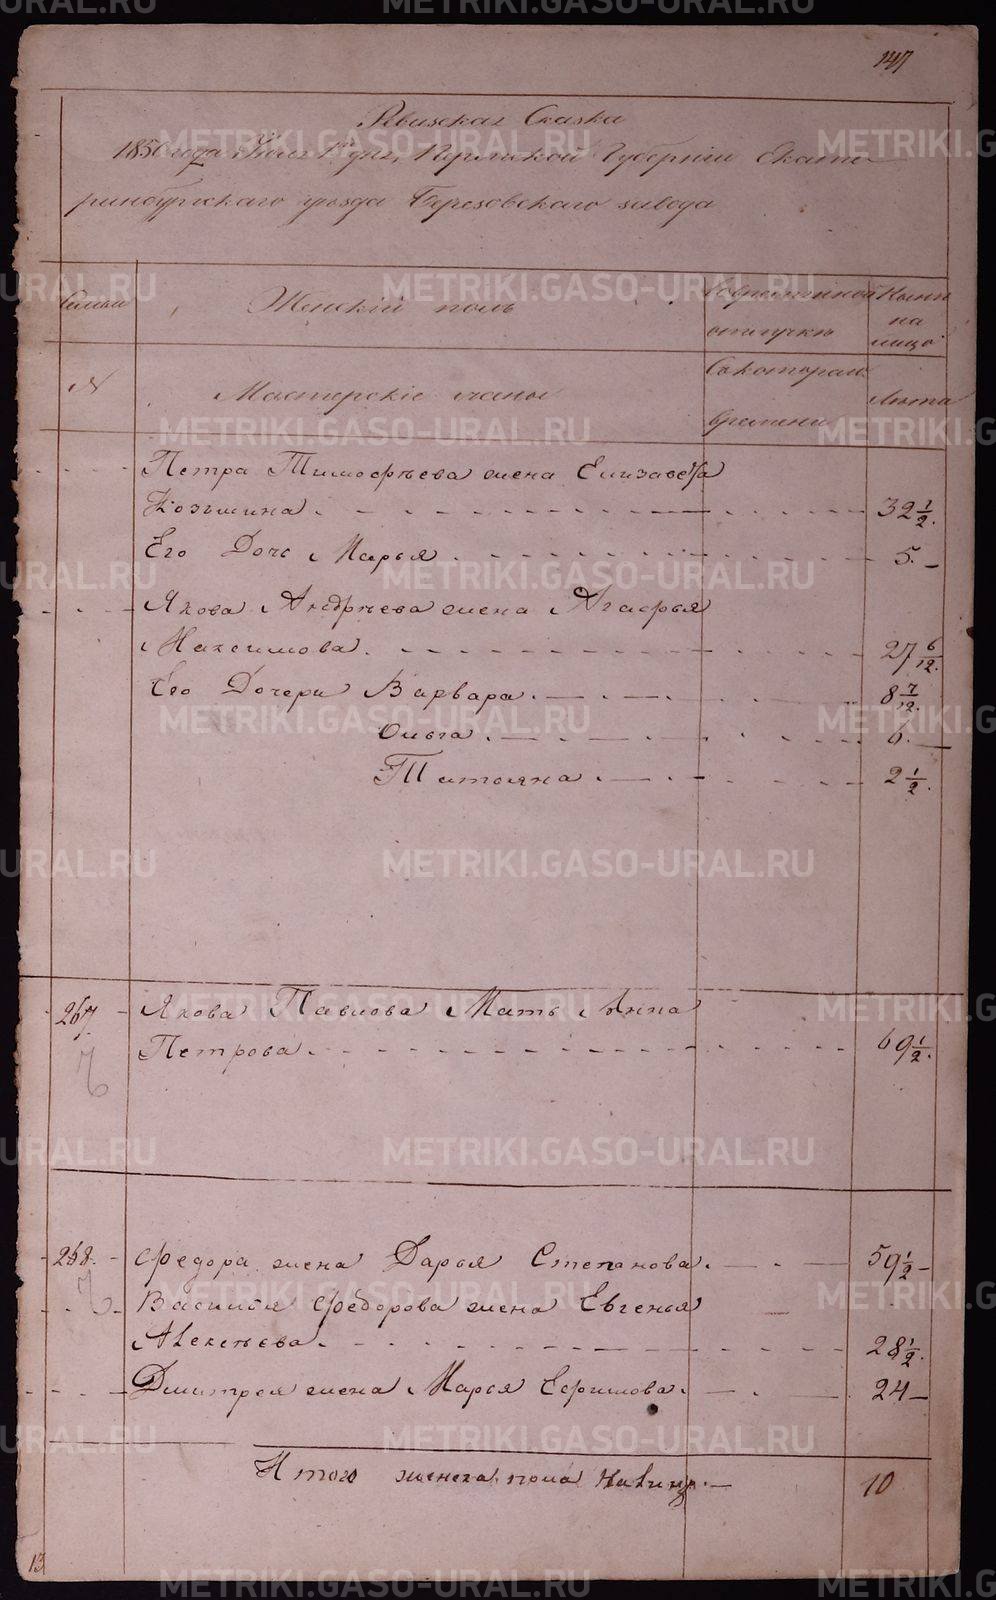 147
Ревизская Сказка
1850 года дня, Пермской Губернiи Екате-
ринбургскаго уѣзда Березовскаго завода
Семьи
Женскiй полъ
Во временной отлучкѣ
Нынѣ на лицо
№
Мастерскiе жены
Съ котораго времени
Лѣта
Петра Тимофѣева жена Елизавета
Козмина 32 1/2
Его Дочь Марья 5
Якова Андрѣева жена Агафья
Максимова 27 6/12
Его Дочери Варвара 8 7/12
Ольга 6
Татьяна 2 1/2
267 Якова Павлова Мать Анна
Петрова 69 1/2
268 Федора жена Дарья Степанова 59 1/2
Василья Федорова жена Евгенья
Алексѣева 28 1/2
Дмитрея жена Марья Ефимова 24
Итого женска пола на лицо 10
13
METRIKI.GASO-URAL.RU